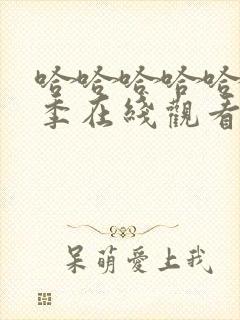 哈哈哈哈哈
季在綫觀看
呆萌愛上我